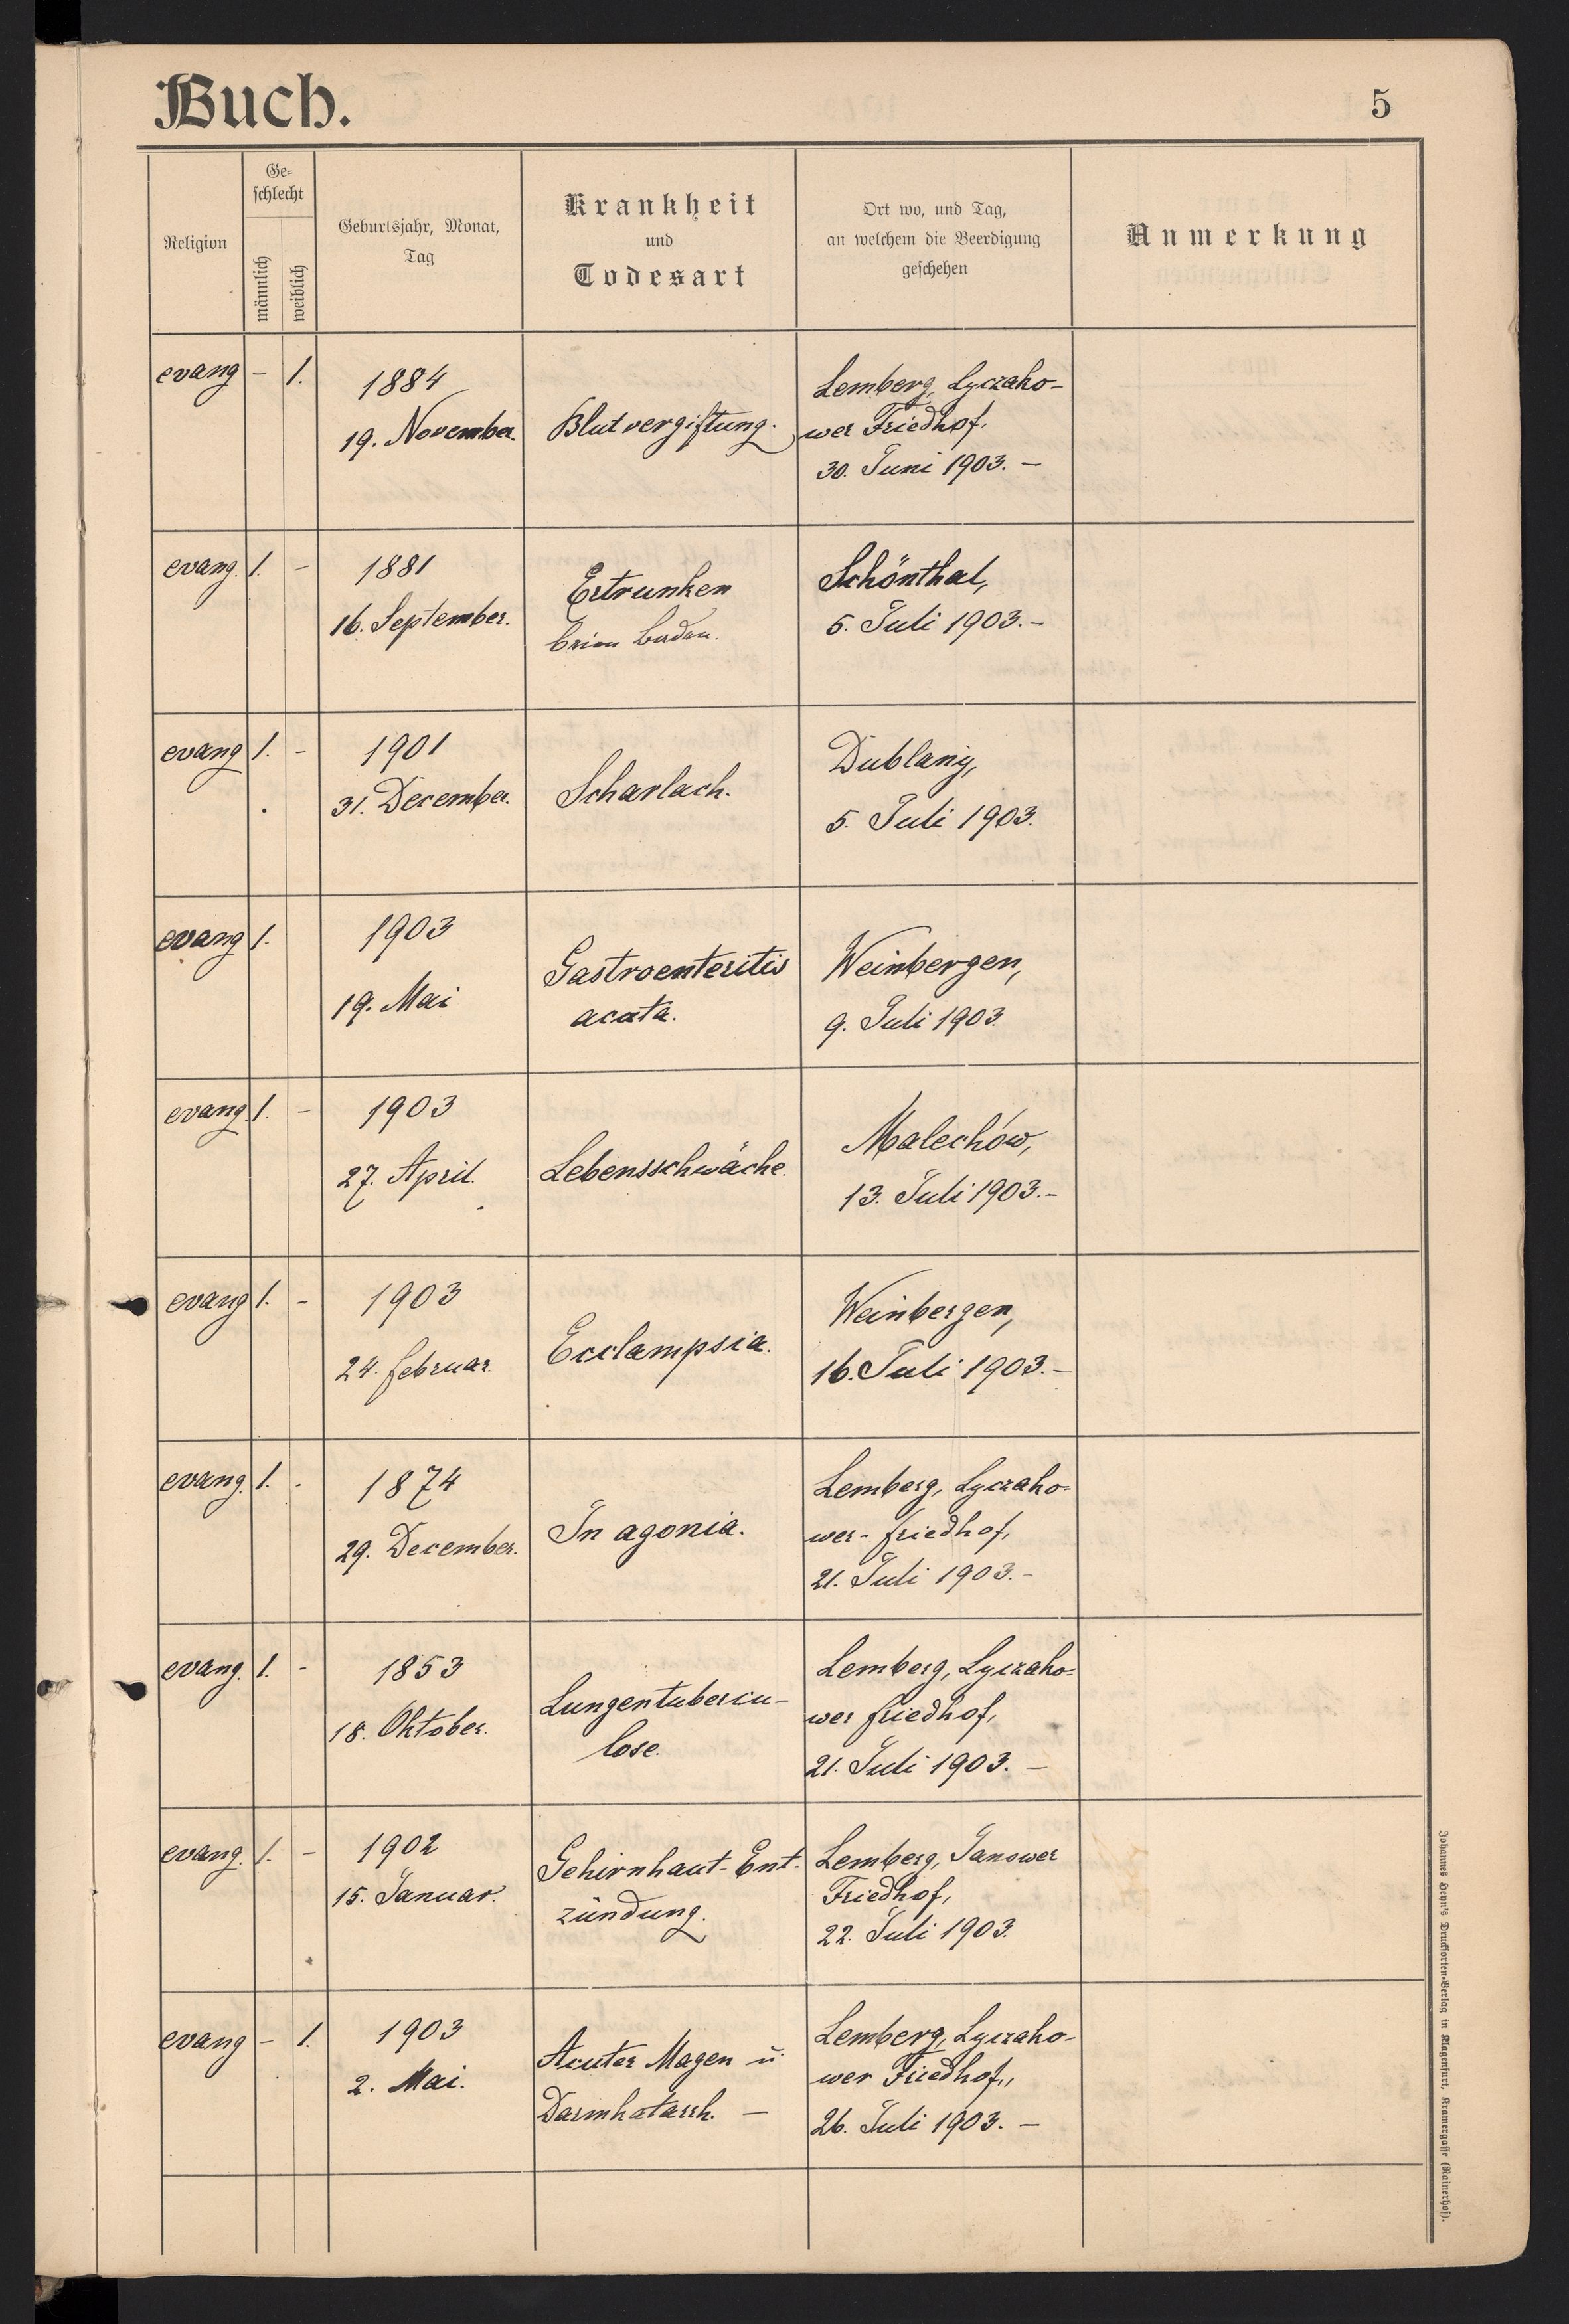 Buch.
5
Religion
Ge-
schlecht
männlich
weiblich
Geburtsjahr, Monat,
Tag
Krankheit
und
Todesart
Ort wo, und Tag,
an welchem die Beerdigung
geschehen
Anmerkung
evang - 1.
1884
19. November.
Blutvergiftung.
Lemberg, Lyczako-
wer Friedhof,
30. Juni 1903. -
evang. 1. -
1881
16. September.
Ertrunken
beim Baden.
Schönthal,
5. Juli 1903. -
evang 1. -
1901
31. December.
Scharlach.
Dublany,
5. Juli 1903.
evang 1.
1903
19. Mai
Gastroenteritis
acuta.
Weinbergen,
9. Juli 1903.
evang. 1. -
1903
27. April.
Lebensschwäche.
Malechów,
13. Juli 1903. -
evang 1. -
1903
24. Februar.
Ecclampsia.
Weinbergen,
16. Juli 1903. -
evang. 1. -
1874
29. December.
In agonia.
Lemberg, Lyczako-
wer-Friedhof,
21. Juli 1903. -
evang. 1. -
1853
18. Oktober.
Lungentubercu-
lose.
Lemberg, Lyczako-
wer Friedhof,
21. Juli 1903. -
evang. 1. -
1902
15. Januar.
Gehirnhaut-Ent-
zündung.
Lemberg, Janower
Friedhof,
22. Juli 1903.
evang - 1.
1903
2. Mai.
Acuter Magen u
Darmkatarrh. -
Lemberg, Lyczako-
wer Friedhof,
26. Juli 1903. -
Johannes Heyn's Drucksorten-Verlag in Klagenfurt, Kramergasse (Rainerhof).